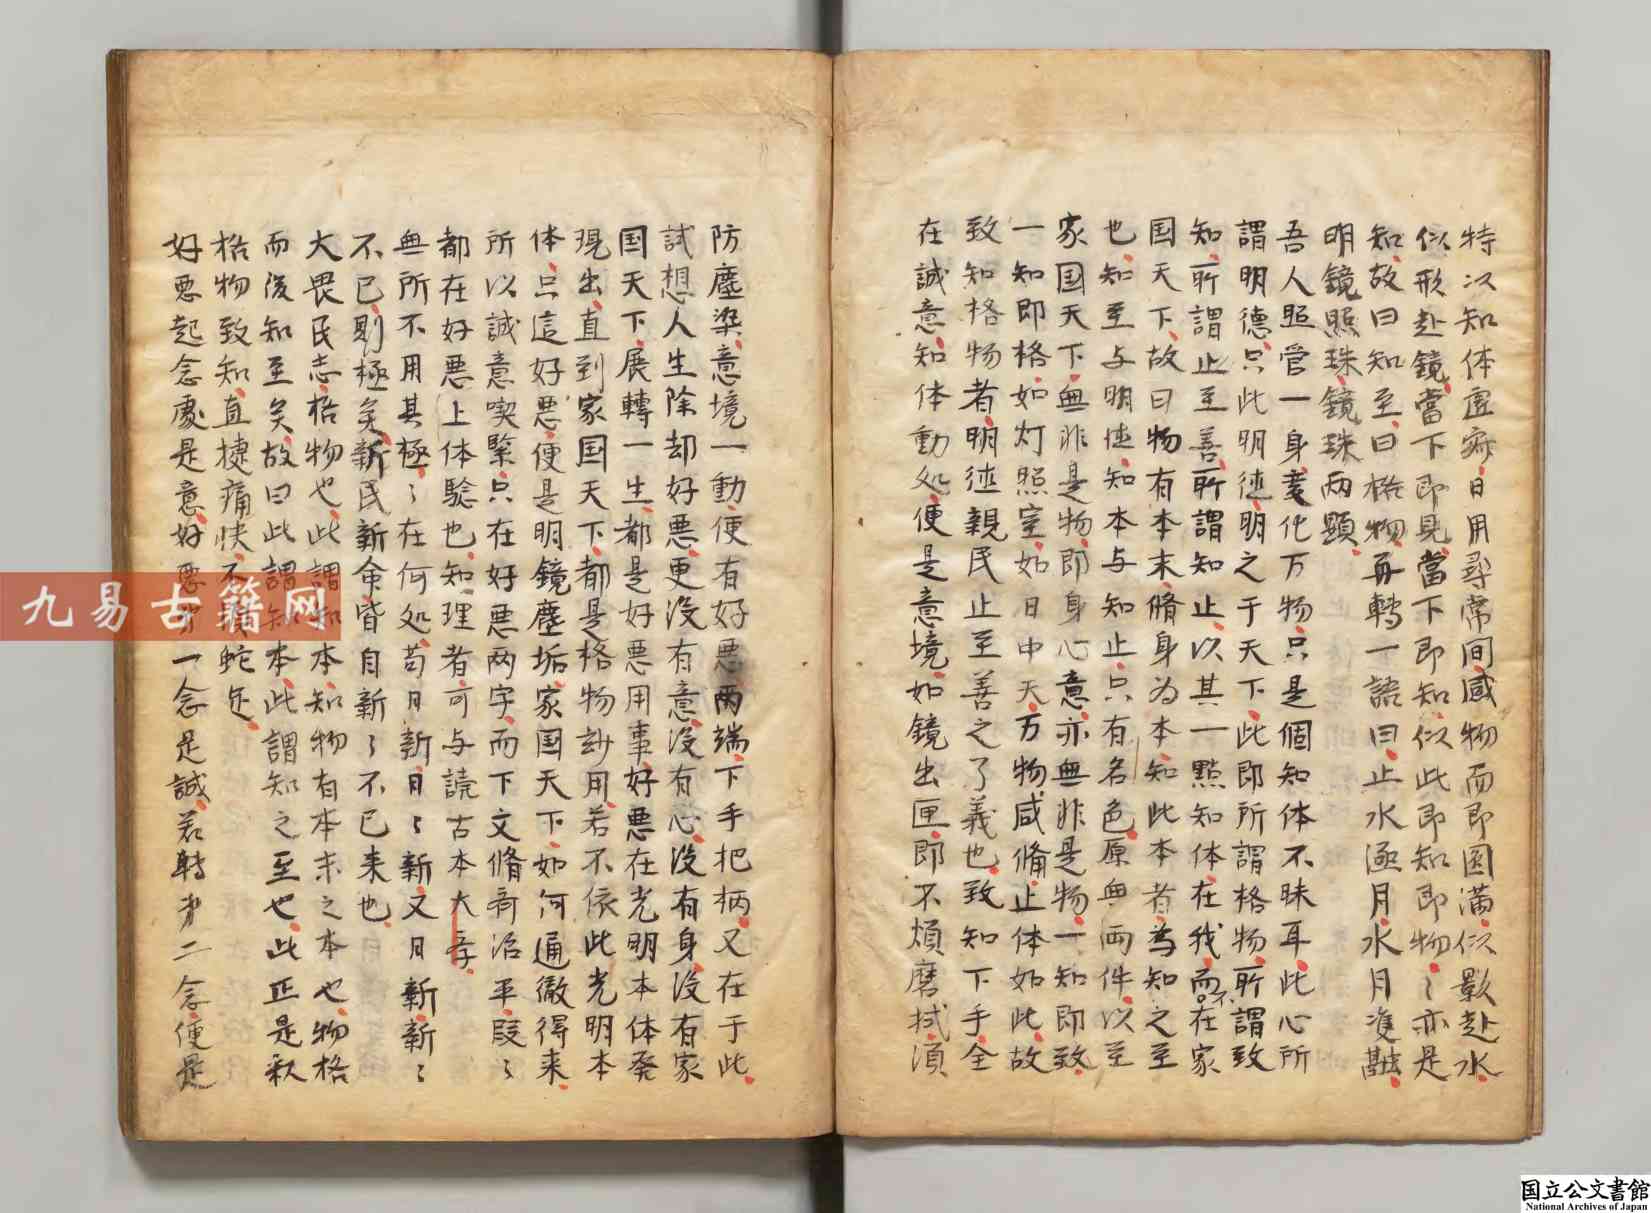 特以知体虚寂日用尋常间感物而即圆满似影赴水
似形赴鏡當下即見當下即知似此即知即物〻亦是
知故曰知至曰格物再轉一語曰止水涵月水月双融
明鏡照珠鏡珠两顕
吾人照管一身変化万物只是個知体不昧耳此心所
謂明德只此明德明之于天下此即所謂格物所謂致
知所謂止至善所謂知止以其一點知体在我而不在家
国天下故曰物有本末脩身为本知此本者為知之至
也知至与明德知本与知止只有名色原無両件以至
家国天下無非是物即身心意亦無非是物一知即致
一知即格如灯照室如日中天万物咸備止体如此故
致知格物者明德親民止至善之了義也致知下手全
在誠意知体動処便是意境如鏡出匣即不煩磨拭須
防塵染意境一動便有好悪两端下手把柄又在于此
試想人生除却好悪更没有意没有心没有身没有家
国天下展轉一生都是好悪用事好悪在光明本体発
現出直到家国天下都是格物妙用若不依此光明本
体只這好悪便是明鏡塵垢家国天下如何通徹得来
所以誠意喫緊只在好悪两字而下文脩齐治平段〻
都在好悪上体驗也知理者可与読古本大学
無所不用其極〻在何処苟日新日〻新又日新新〻
不已則極矣新民新命皆自新〻不已来也
大畏民志格物也此謂知本知物有本末之本也物格
而後知至矣故曰此謂知本此謂知之至也此正是釈
格物致知直捷痛快不蛇足
好悪起念處是意好悪一念是誠若轉第二念便是
九易古籍网
国立公文書館
National Archives of Japan